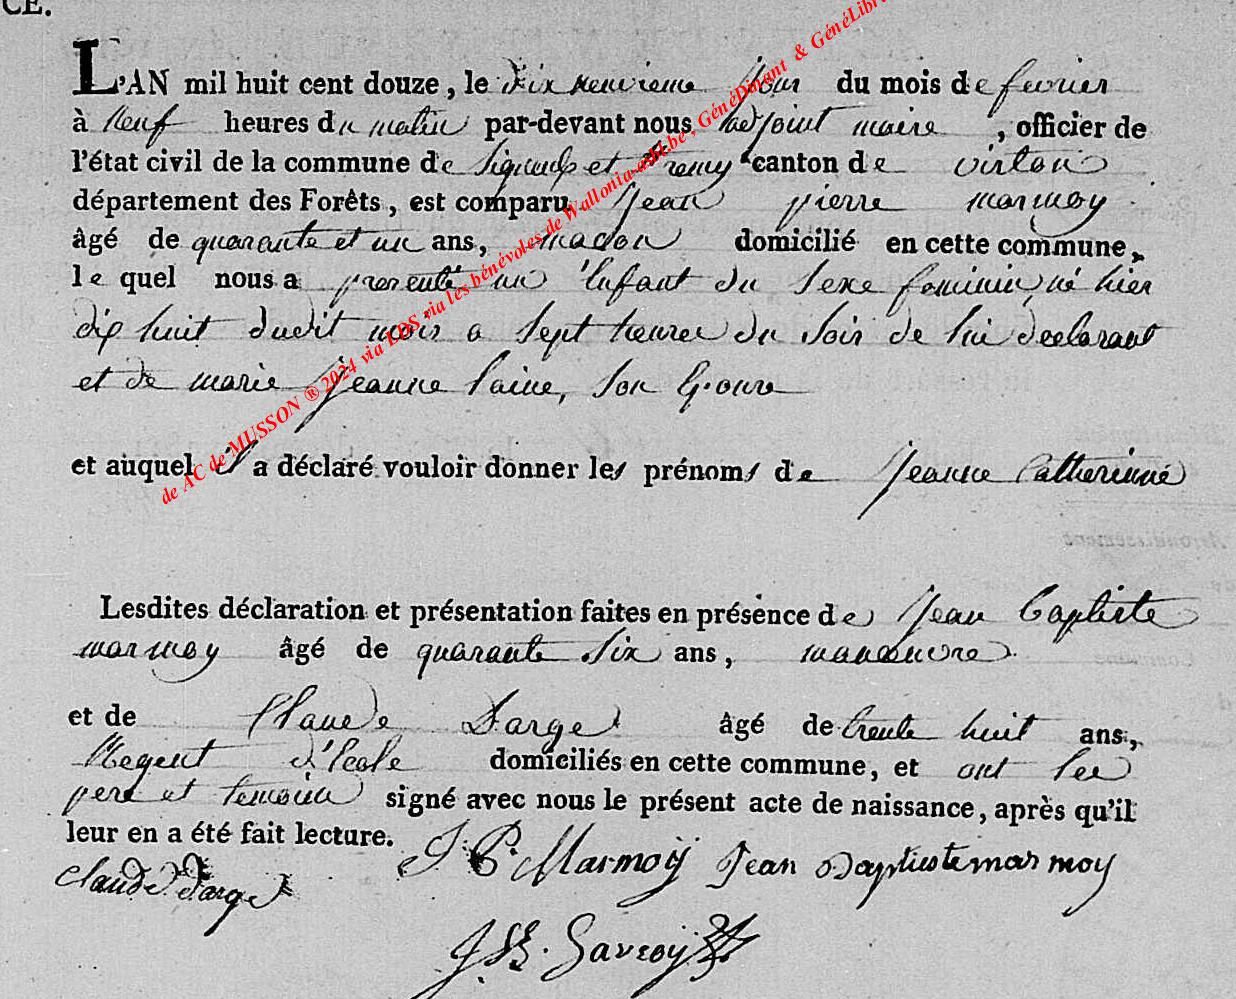 CE.
L'AN mil huit cent douze, le dix neuvieme jour du mois de fevrier
à neuf heures du matin par-devant nous adjoint maire, officier de
l'état civil de la commune de Signeulx et canton de virton
département des Forêts, est comparu Jean pierre marmoy
âgé de quarante et un ans, macon domicilié en cette commune,
le quel nous a presenté un Enfant du Sexe feminin, né hier
dix huit dudit mois a Sept heures du Soir de lui declarant
et de marie jeanne Son Epouse
et auquel il a déclaré vouloir donner les prénoms de Jeanne Catherinne
Lesdites déclaration et présentation faites en présence de Jean Baptiste
marmoy âgé de quarante Six ans, manoeuvre
et de Claude Darge âgé de trente huit ans,
Regent d'Ecole domiciliés en cette commune, et ont les
pere et temoin signé avec nous le présent acte de naissance, après qu'il
leur en a été fait lecture. J P. Marmoÿ Jean Baptiste marmoy
claude darge
de AC de MUSSON ® 2024 via LDS via les bénévoles de Wallonia-asbl.be, GénéDinant & GénéLibr